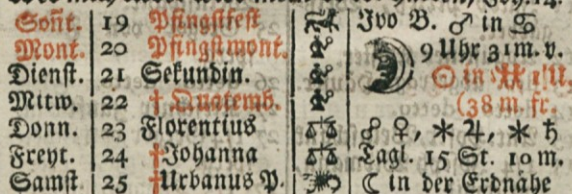 Soñt. 19 Pfingstfest Ivo B. ♂ in ♋
Mont. 20 Pfingstmont. 9 Uhr 31 m. v.
Dienst. 21 Sekundin. ☉ in ♊ 1 U.
Mitw. 22 † Quatemb. (38 m. fr.
Donn. 23 Florentius ♎ ☍ ♀, ⚹ ♃, ⚹ ♄
Freyt. 24 †Johanna ♎ Tagl. 15 St. 10 m.
Samst. 25 †Urbanus P. ☾ in der Erdnähe